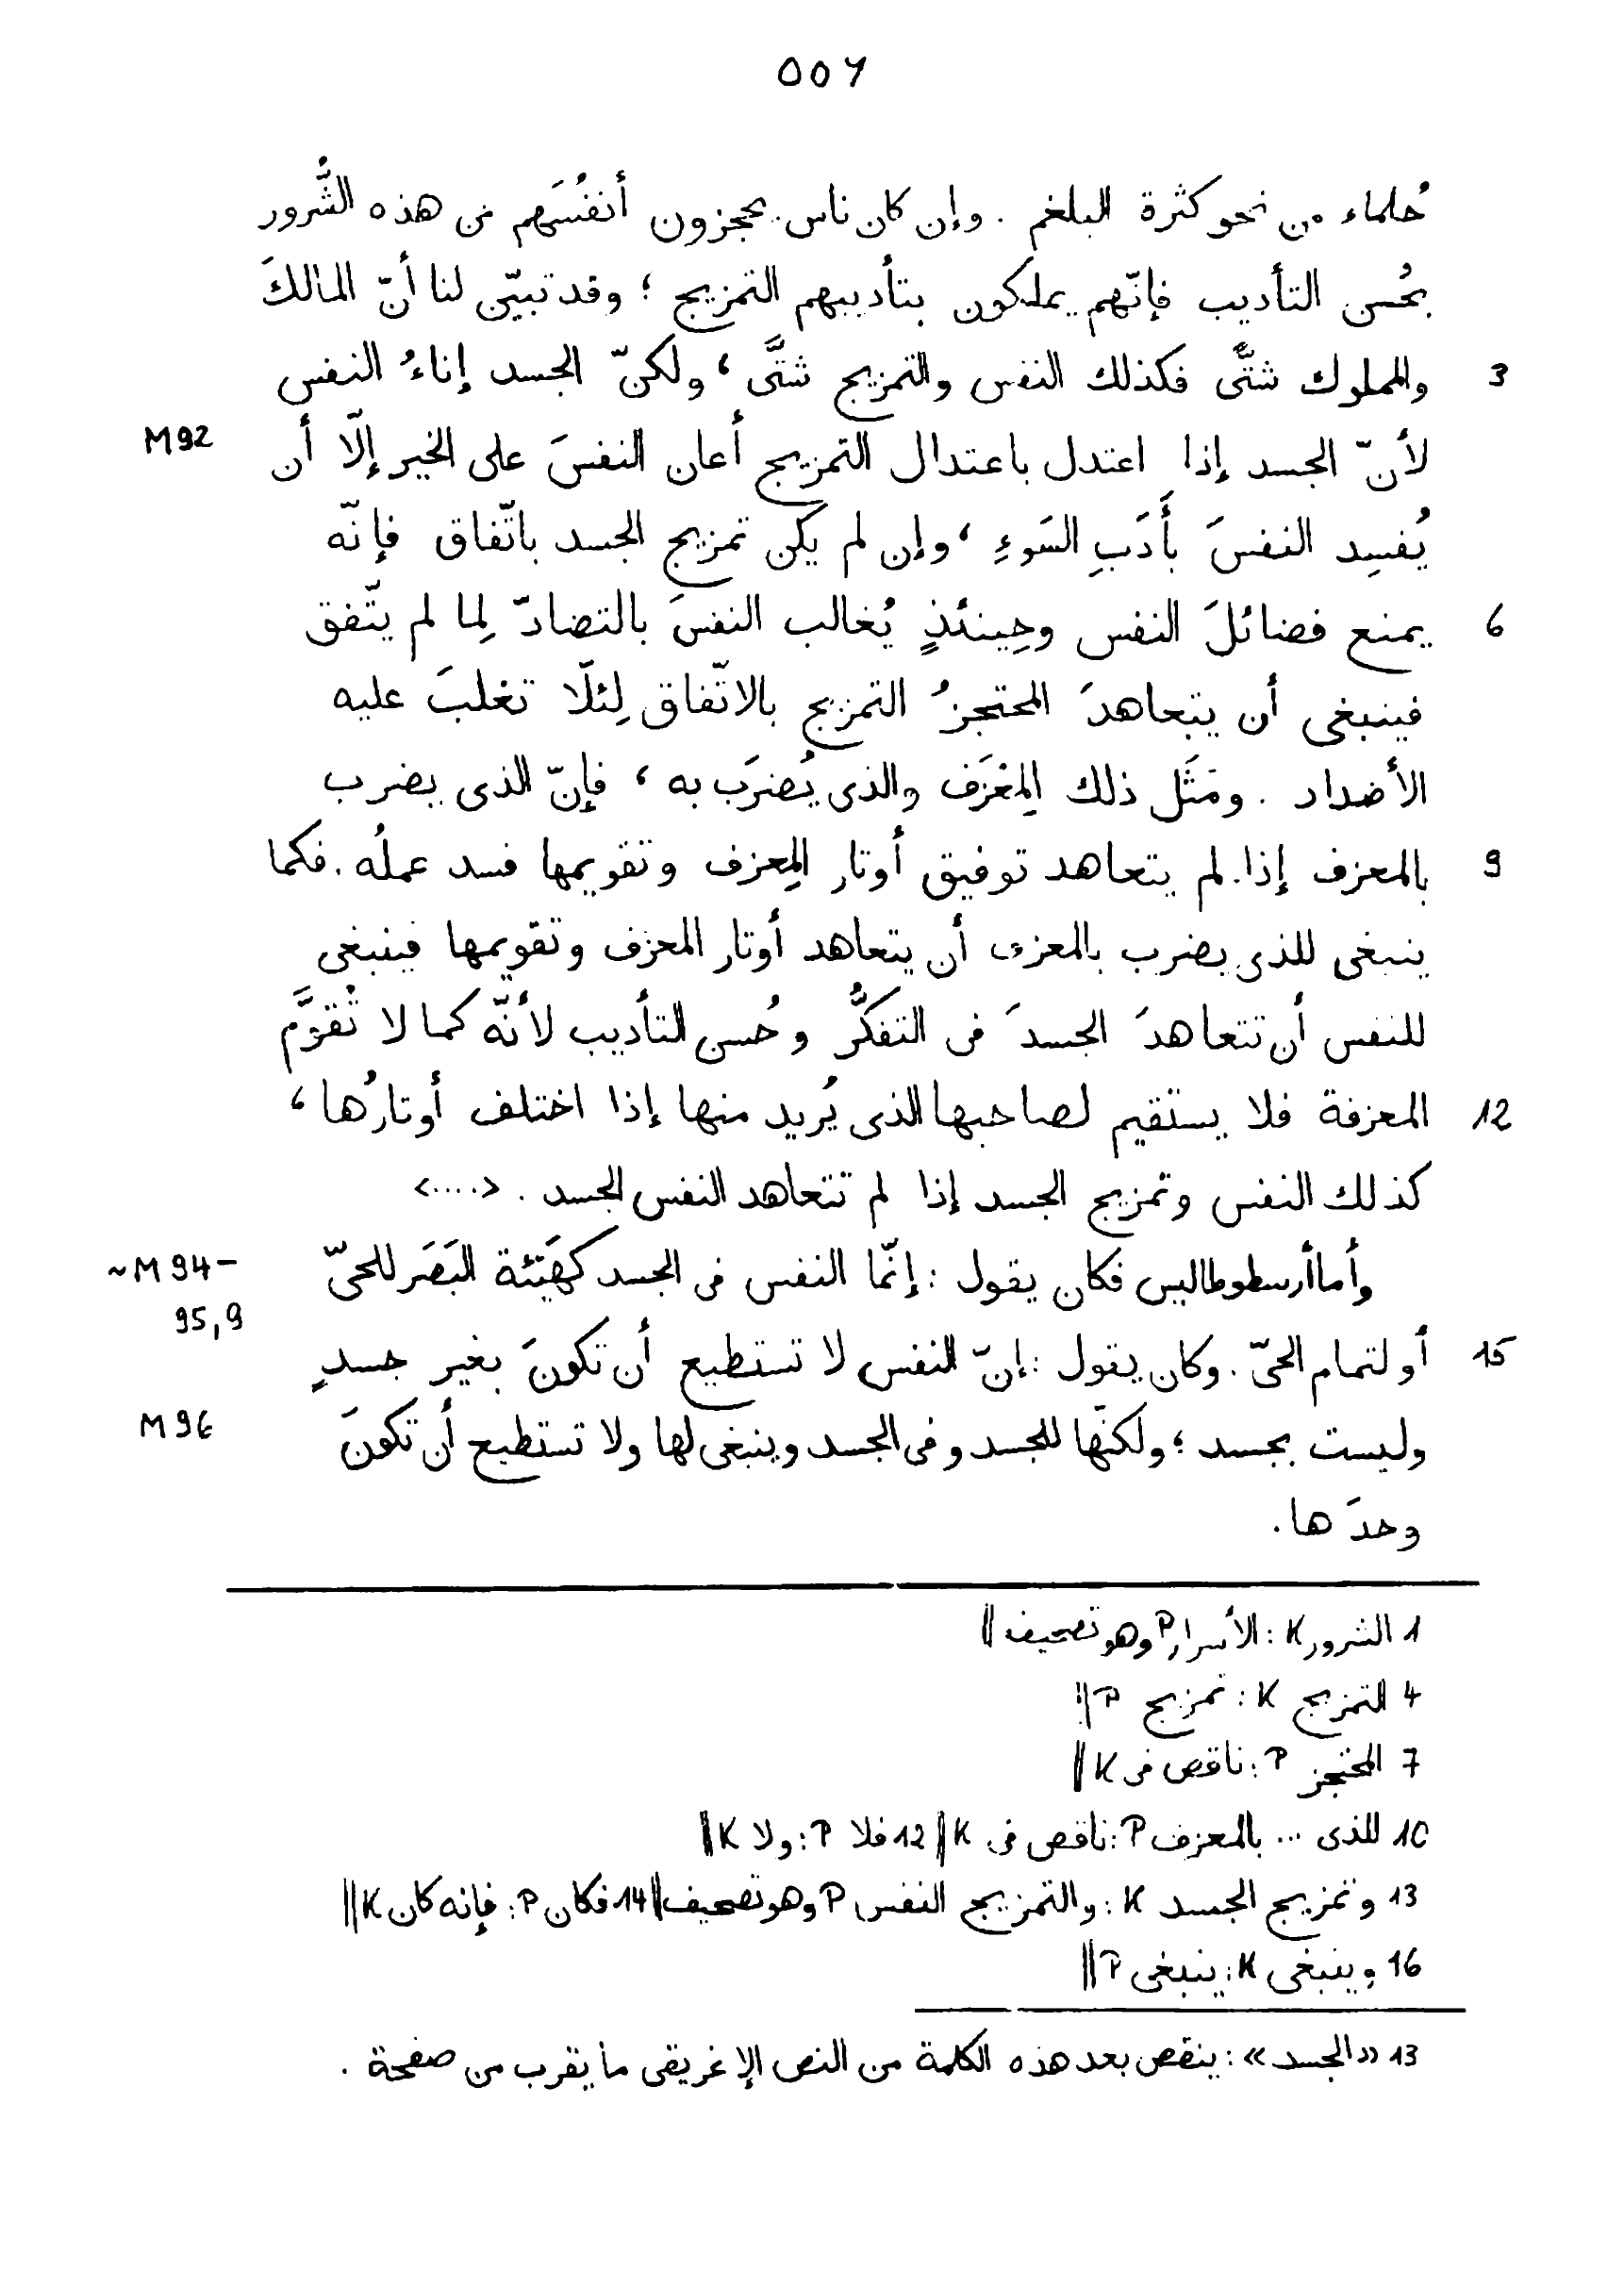 حُلماء من نحو كثرة البلغم . وإن كان ناس يحجزون أنفُسَهم من هذه الشُّرور
بحُسن التأديب فإنّهم يملكون بتأديبهم التمزيج ؛ وقد تبيّن لنا أنّ المالكَ
3 والمملوك شتَّى فكذلك النفس والتمزيج شتَّى ، ولكنّ الجسد إناءُ النفس
M92 لأنّ الجسد إذا اعتدل باعتدال التمزيج أعان النفسَ على الخير إلّا أن
يُفسِد النفسَ بأَدَبِ السَوءِ ، وإن لم يكن تمزيج الجسد باتّفاق فإنّه
6 يمنع فضائلَ النفس وحِينئذٍ يُغالب النفسَ بالتضادّ لِما لم يتّفق
فينبغى أن يتعاهدَ المحتجزُ التمزيج بالاتّفاق لِئلّا تغلبَ عليه
الأضداد . ومَثَل ذلك المِعْزَف والذى يُضرَب به ، فإنّ الذى يضرب
9 بالمعزف إذا لم يتعاهد توفيق أوتار المِعزف وتقويمها فسد عملُه . فكما
ينبغى للذى يضرب بالمعزف أن يتعاهد أوتار المعزف وتقويمها فينبغى
للنفس أن تتعاهدَ الجسدَ فى التفكُّر وحُسن التأديب لأنّه كما لا تُقوَّم
12 المعزفة فلا يستقيم لصاحبها الذى يُريد منها إذا اختلف أوتارُها ،
كذلك النفس وتمزيج الجسد إذا لم تتعاهد النفس الجسد . <....>
~M 94– وأما أرسطوطاليس فكان يقول : إنّما النفس فى الجسد كهَيْئة البَصَر للحىّ
95,9
15 أو لتمام الحىّ . وكان يقول : إنّ النفس لا تستطيع أن تكونَ بغير جسدٍ
M96 وليست بجسد ؛ ولكنّها للجسد وفى الجسد وينبغى لها ولا تستطيع أن تكونَ
وحدَها .
1 الشرور K : الأسرار P وهو تصحيف ||
4 التمزيج K : تمزيج P ||
7 المحتجز P : ناقص فى K ||
10 للذى ... بالمعزف P : ناقص فى K || 12 فلا P : ولا K ||
13 وتمزيج الجسد K : والتمزيج النفس P وهو تصحيف || 14 فكان P : فإنه كان K ||
16 وينبغى K : ينبغى P ||
13 «الجسد» : ينقص بعد هذه الكلمة من النص الإغريقى ما يقرب من صفحة .